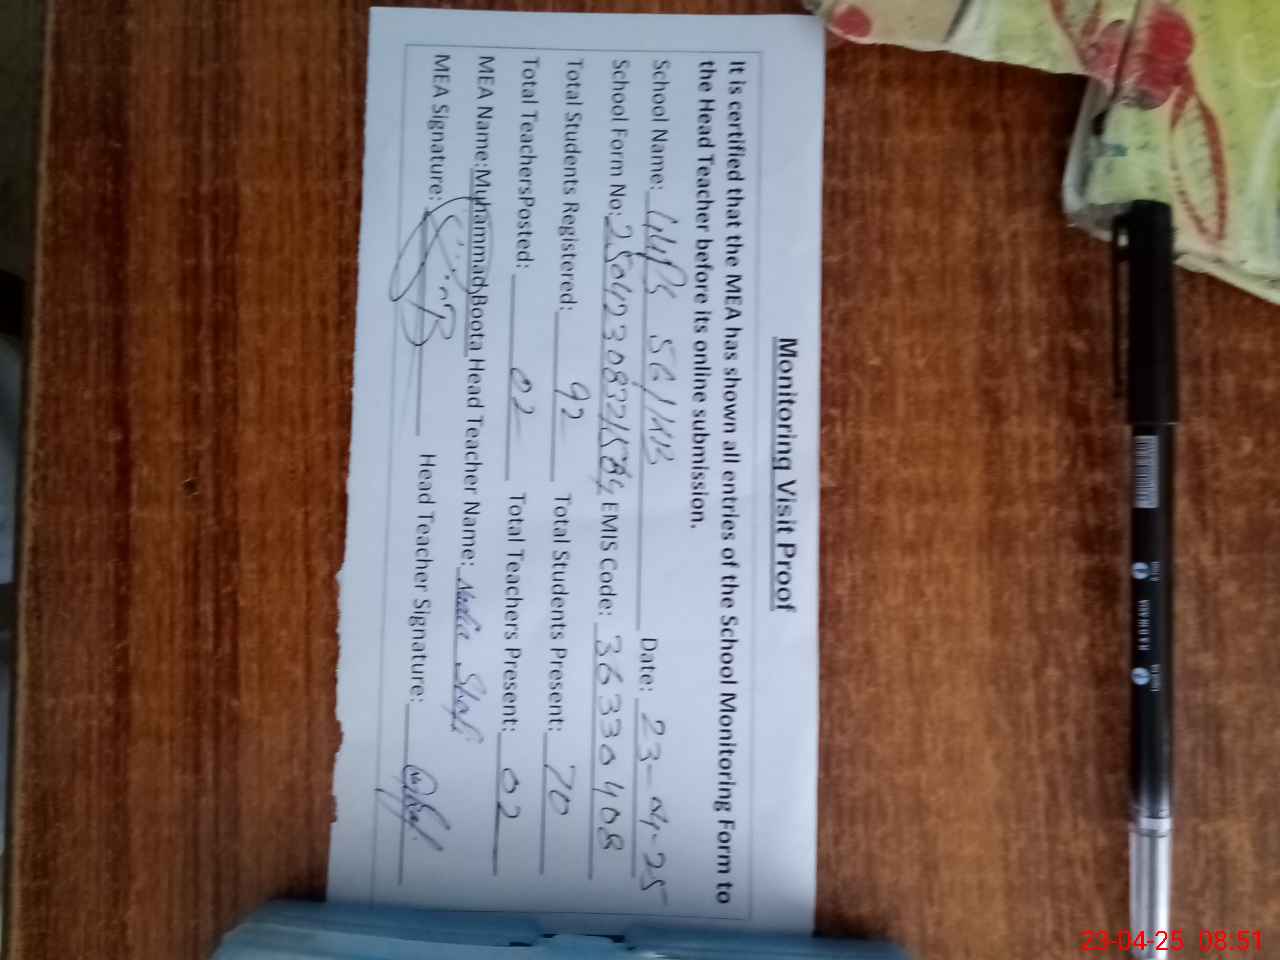 Monitoring Visit Proof
It is certified that the MEA has shown all entries of the School Monitoring Form to
the Head Teacher before its online submission.
School Name: 56/KB Date: 23-04-25
School Form No: EMIS Code: 36330408
Total Students Registered: 92 Total Students Present: 70
Total TeachersPosted: 02 Total Teachers Present: 02
MEA Name: Muhammad Boota Head Teacher Name: Nadia Shafi
MEA Signature: Head Teacher Signature:
23-04-25 08:51